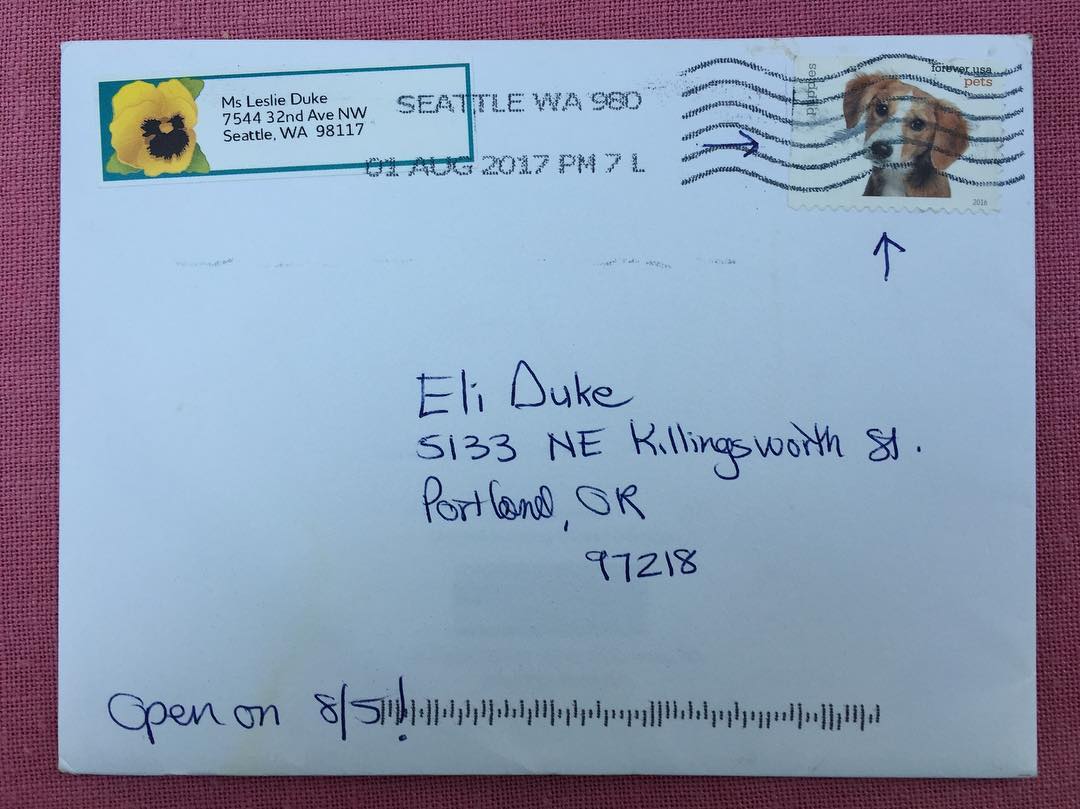 Ms Leslie Duke
7544 32nd Ave NW
Seattle, WA 98117
SEATTLE WA 980
01 AUG 2017 PM 7 L
puppies
forever usa
pets
2016
Eli Duke
5133 NE Killingsworth St.
Portland, OR
97218
Open on 8/5!